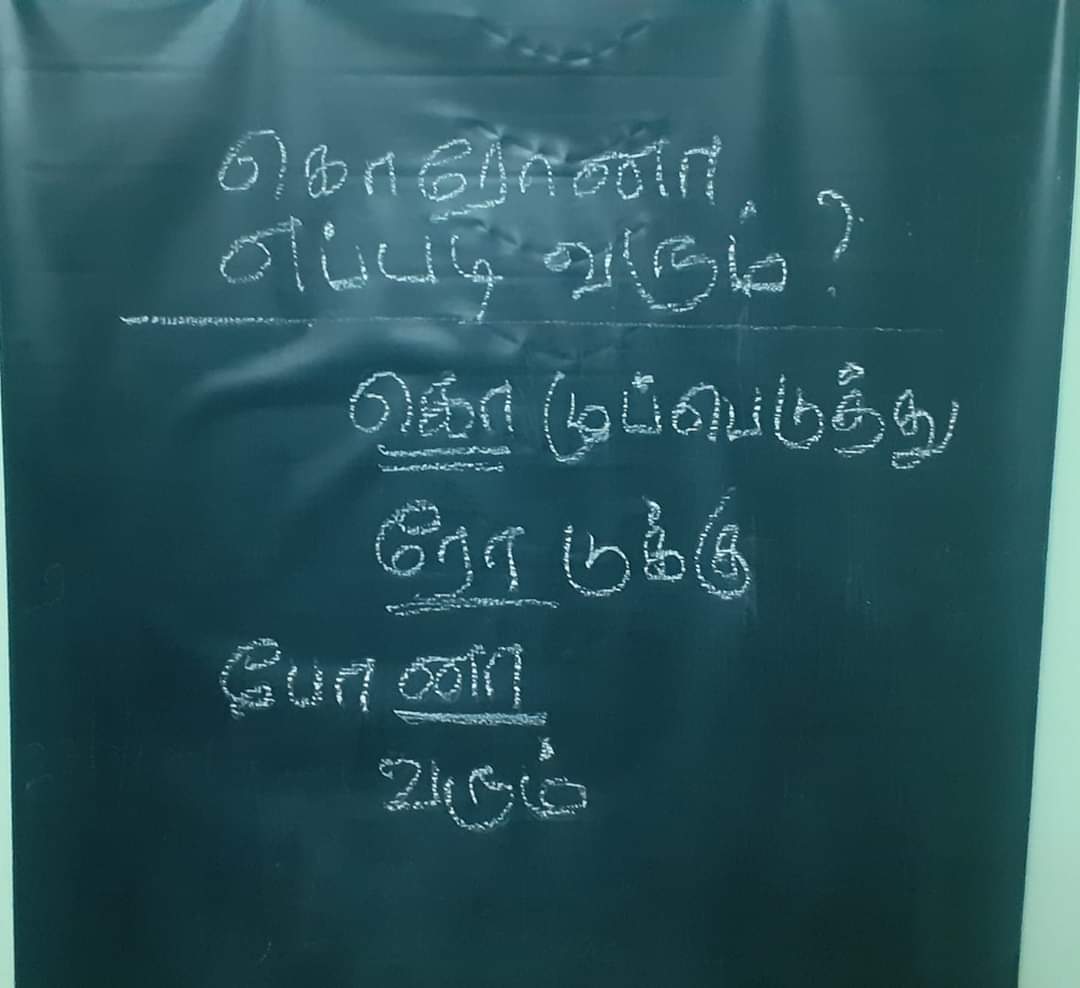 கொரோனா
எப்படி வரும்?
கொழுப்பெடுத்து
ரோடுக்கு
போனா
வரும்